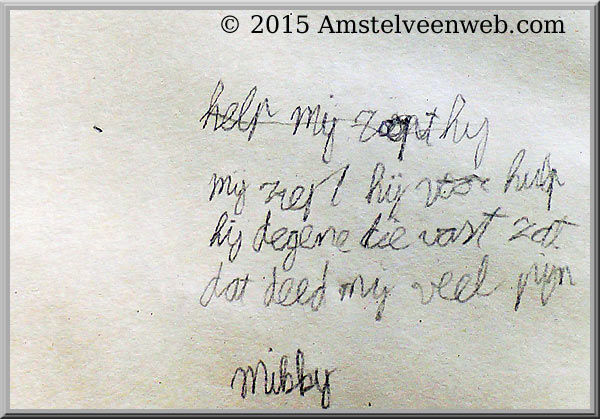 © 2015 Amstelveenweb.com
help mij roept hy
mij riep hij voor hulp
hij degene die vast zat
dat deed mij veel pijn
Mibby